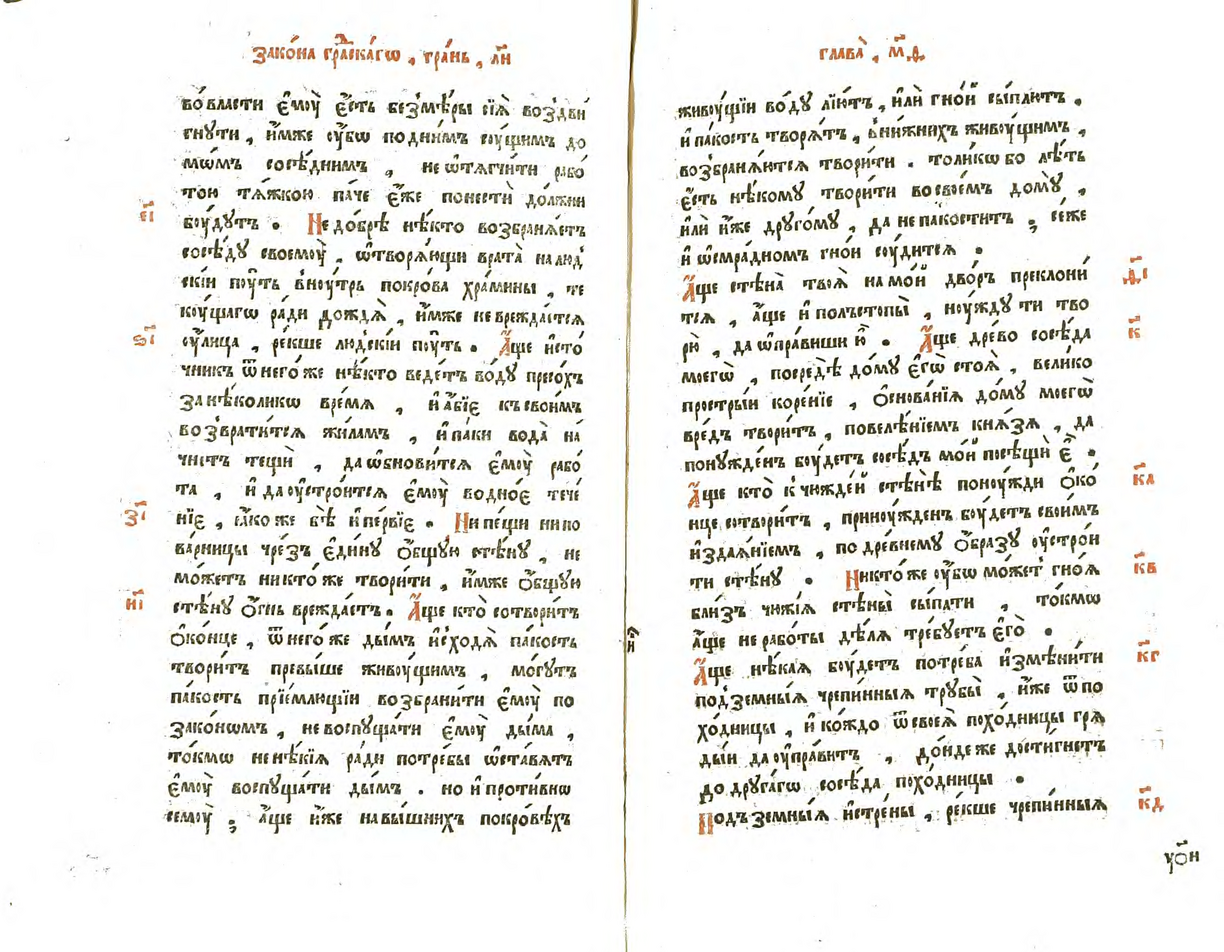 Зако́на гра́дскагѡ , гра́нь , л҃и
во́ власти є҆моу̀ є҆́сть без̾мѣ́ры сїѧ̀ воздви́
гнути , и҆́мже ѹ҆́бѡ под̾ни́мъ соу́щимъ до
мѡ́мъ сосѣ́днимъ , не ѡ҆тѧгчи́ти рабо́
тою тѧ́жкою па́че є҆́же понестѝ до́лжни
є҃і
боу́дутъ . Не до́брѣ нѣ́кто возбранѧ́етъ
сосѣ́ду своемоу̀ , ѿтворѧ́ющи врата̀ на люд̾
скі́и поу́ть внꙋ́трь покро́ва хра́мины , те
коу́щагѡ ра́ди дождѧ̀ , и҆́мже не врежда́етсѧ
ѕ҃і
ѹ҆́лица , ре́кше людскі́и поу́ть . А҆́ще и҆сто́
чникъ ѿ него́же нѣ́кто веде́тъ во́ду пресо́хъ
за нѣ́коликѡ вре́мѧ , и҆ а҆́бїе къ свои́мъ
возврати́тсѧ жи́ламъ , и҆ па́ки вода̀ на́
чнетъ тещѝ , да ѡ҆бнови́тсѧ є҆моу̀ рабо́
та , и҆ да оу҆стро́итсѧ є҆моу̀ во́дное тече́
з҃і
нїе , ꙗ҆́коже бѣ̀ и҆ пе́рвїе . Ни пе́щи ни по
ва́рницы чре́зъ є҆ди́ну ѻ҆́бщую стѣ́ну , не
мо́жетъ никто́же твори́ти , и҆́мже ѻ҆́бщую
и҃і
стѣ́ну ѻ҆́гнь врежда́етъ . А҆́ще кто̀ сотвори́тъ
ѻ҆ко́нце , ѿ него́же ды́мъ и҆сходѧ̀ па́кость
твори́тъ превы́ше живоу́щимъ , мо́гутъ
па́кость прїе́млющїи возбрани́ти є҆моу̀ по
зако́нѡмъ , не воспуща́ти є҆моу̀ ды́ма ,
то́кмѡ не нѣ́кїѧ ра́ди потре́бы ѡ҆ста́вѧтъ
є҆моу̀ воспуща́ти ды́мъ . но и҆ проти́внѡ
семоу̀ ; а҆́ще и҆́же на вы́шнихъ покро́вѣхъ
глава̀ , м҃ѳ .
живоу́щїи во́ду лїю́тъ , и҆лѝ гно́й сы́плютъ .
и҆ па́кость творѧ́тъ , в̾ни́жнихъ живоу́щимъ ,
возбранѧ́ютсѧ твори́ти . толи́кѡ бо лѣ́ть
є҆́сть нѣ́кому твори́ти во свое́мъ дому̀ ,
и҆лѝ и҆́же друго́му , да не па́коститъ ; се́же
и҆ ѡ҆ смра́дномъ гно́и соу́дитсѧ .
ѳ҃і
А҆́ще стѣна̀ твоѧ̀ на мо́й дво́ръ преклони́
тсѧ , а҆́ще и҆ по́лъстопы̀ , ноу́жду ти тво
к҃
рю̀ , да ѡ҆пра́виши ю҆̀ . А҆́ще дре́во сосѣ́да
моегѡ̀ , посредѣ̀ до́му є҆гѡ̀ стоѧ̀ , вели́ко
простры́и коре́нїе , ѻ҆снова́нїѧ до́му моегѡ̀
вре́дъ твори́тъ , повелѣ́нїемъ кнѧ́зѧ , да
понужде́нъ боу́детъ сосѣ́дъ мо́й посѣщѝ є҆̀ .
к҃а
А҆́ще кто̀ к̾ чюжде́й стѣнѣ̀ поноу́жди ѻ҆ко́
нце сотвори́тъ , приноужде́нъ боу́детъ свои́мъ
и҆здаѧ́нїемъ , по дре́внему ѻ҆́бразу оу҆стро́и
к҃в
ти стѣ́ну . Никто́же ѹ҆́бѡ мо́жет̾ гно́ѧ
бли́зъ чюжі́ѧ стѣны̀ сы́пати , то́кмѡ
а҆́ще не рабо́ты дѣ́лѧ тре́буетъ є҆го̀ .
к҃г
А҆́ще нѣ́каѧ боу́детъ потре́ба и҆змѣни́ти
под̾зе́мныѧ чрепи́нныѧ трубы̀ , и҆́же ѿ по
хо́дницы , и҆ ко́ждо ѿ своеѧ̀ похо́дницы грѧ
ды́и да оу҆пра́витъ , до́ндеже дости́гнетъ
до друга́гѡ сосѣ́да похо́дницы .
к҃д
Под̾зе́мныѧ и҆стре́ны , ре́кше чрепи́нныѧ
у҃ои